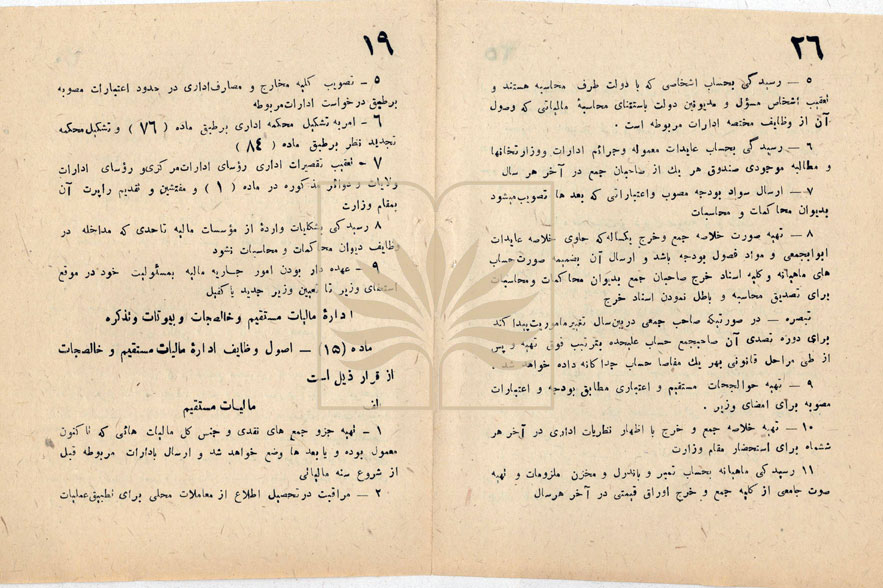 ۲۶
۵ — رسیدگی بحساب اشخاصی که با دولت طرف محاسبه هستند و
تعقیب اشخاص مسؤل و مدیونین دولت باستثنای محاسبهٔ مالیاتی که وصول
آن از وظایف مختصه ادارات مربوطه است .
۶ — رسیدگی بحساب عایدات معموله وجرائم ادارات ووزارتخانها
و مطالبه موجودی صندوق هر یك از صاحبان جمع در آخر هر سال
۷ — ارسال سواد بودجه مصوب واعتباراتی که بعد ها تصویب میشود
بدیوان محاکمات و محاسبات
۸ — تهیه صورت خلاصه جمع وخرج یکساله که حاوی خلاصه عایدات
ابوابجمعی و مواد فصول بودجه باشد و ارسال آن بضمیمه صورت حساب
های ماهیانه وکلیه اسناد خرج صاحبان جمع بدیوان محاکمات ومحاسبات
برای تصدیق محاسبه و باطل نمودن اسناد خرج
تبصره — در صورتیکه صاحب جمعی دربین سال تغییرماموریت پیدا کند
برای دوره تصدی آن صاحبجمع حساب علیحده بترتیب فوق تهیه و پس
از طی مراحل قانونی بهر یك مفاصا حساب جداکانه داده خواهد شد .
۹ — تهیه حوالجات مستقیم و اعتباری مطابق بودجه و اعتبارات
مصوبه برای امضای وزیر .
۱۰ — تهیه خلاصه جمع و خرج با اظهار نظریات اداری در آخر هر
ششماه برای استحضار مقام وزارت
۱۱ رسیدگی ماهیانه بحساب تمبر و باندرل و مخزن ملزومات و تهیه
صوت جامعی از کلیه جمع و خرج اوراق قیمتی در آخر هرسال
۱۹
۵ - تصویب کلیه مخارج و مصارف اداری در حدود اعتبارات مصوبه
برطبق درخواست ادارات مربوطه
۶ - امربه تشکیل محکمه اداری برطبق ماده ( ۷۶ ) و تشکیل محکمه
تجدید نظر برطبق ماده ( ۸۴ )
۷ - تعقیب تقصیرات اداری رؤسای ادارات مرکزی و رؤسای ادارات
ولایات و دوائر مذکوره در ماده ( ۱ ) و مفتشین و تقدیم راپرت آن
بمقام وزارت
۸ رسیدگی بشکایات واردهٔ از مؤسسات مالیه تاحدی که مداخله در
وظایف دیوان محاکمات و محاسبات نشود
۹ - عهده دار بودن امور جاریه مالیه بمسئولیت خود در موقع
استعفای وزیر تا تعیین وزیر جدید یاکفیل
ادارهٔ مالیات مستقیم وخالصجات و بیوتات وتذکره
ماده (۱۵) — اصول وظایف ادارهٔ مالیات مستقیم و خالصجات
از قرار ذیل است
الف مالیات مستقیم
۱ - تهیه جزو جمع های نقدی و جنس کل مالیات هائی که تاکنون
معمول بوده و یا بعد ها وضع خواهد شد و ارسال بادارات مربوطه قبل
از شروع سنه مالیاتی
۲ — مراقبت درتحصیل اطلاع از معاملات محلی برای تطبیق عملیات